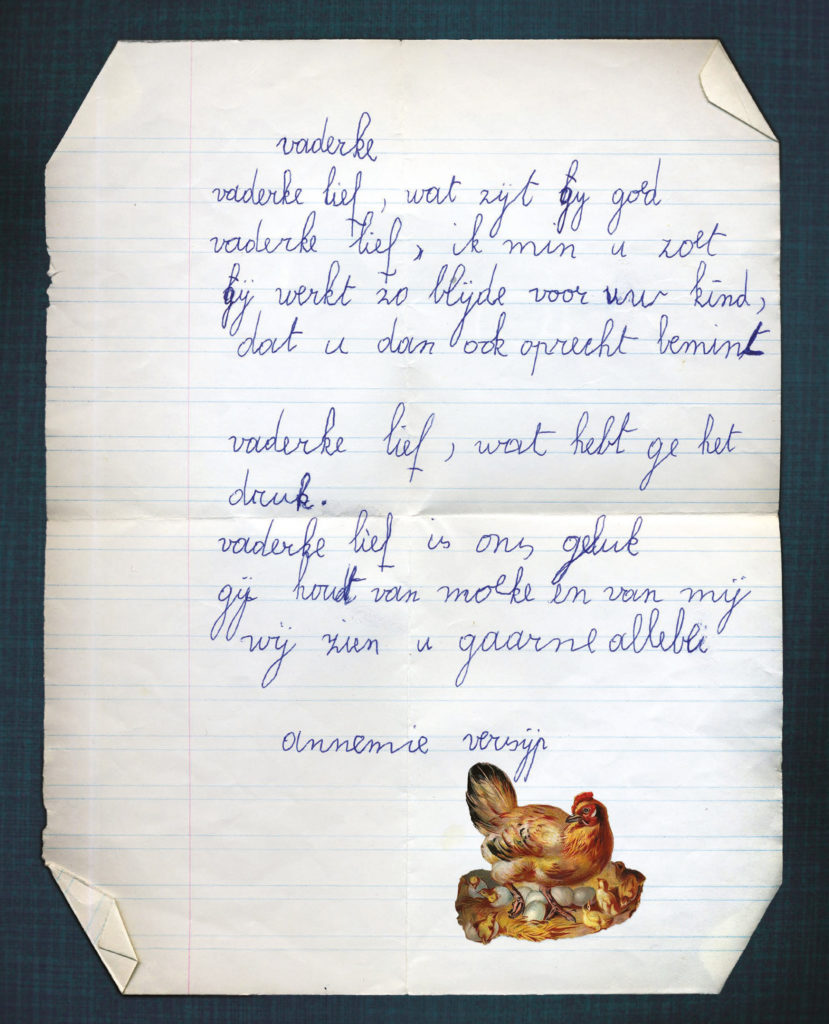 vaderke
vaderke lief, wat zijt gy goed
vaderke lief, ik min u zoet
gij werkt zo blijde voor uw kind,
dat u dan ook oprecht bemint
vaderke lief, wat hebt ge het
druk.
vaderke lief is ons geluk
gij houdt van moeke en van mij
wij zien u gaarne allebei
annemie versijp